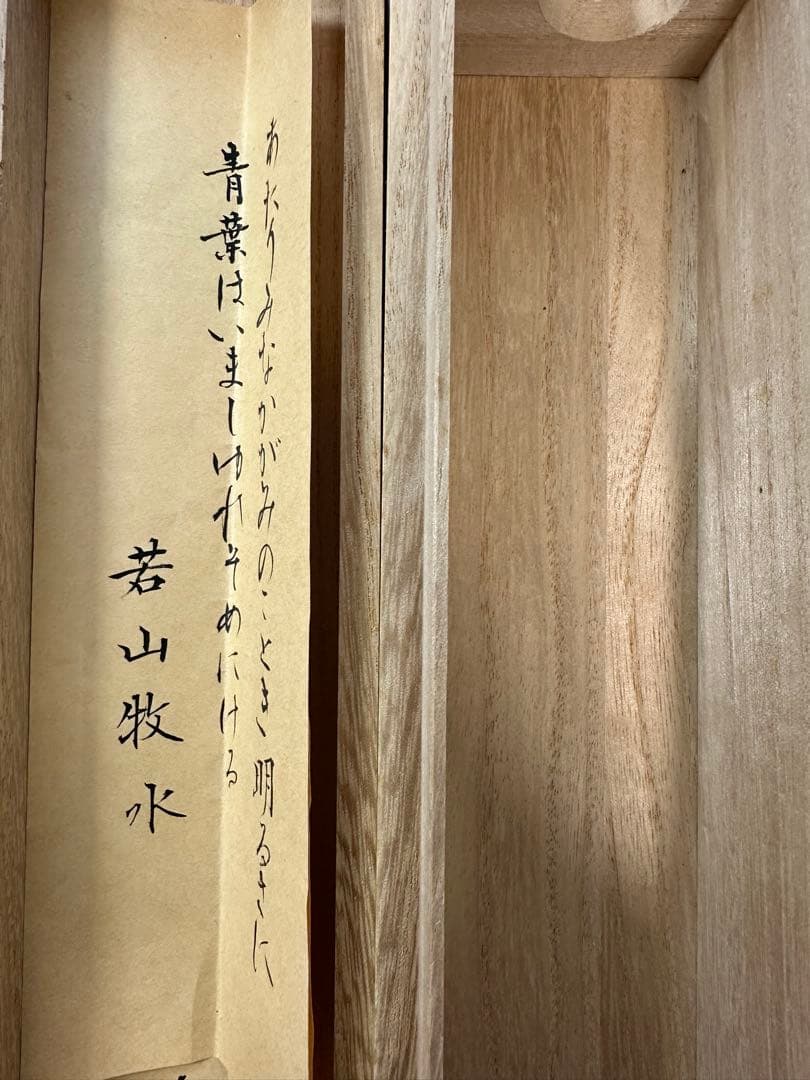 あたりみなかがみのことき明るきに
青葉はいましゆれそめにける
若山牧水